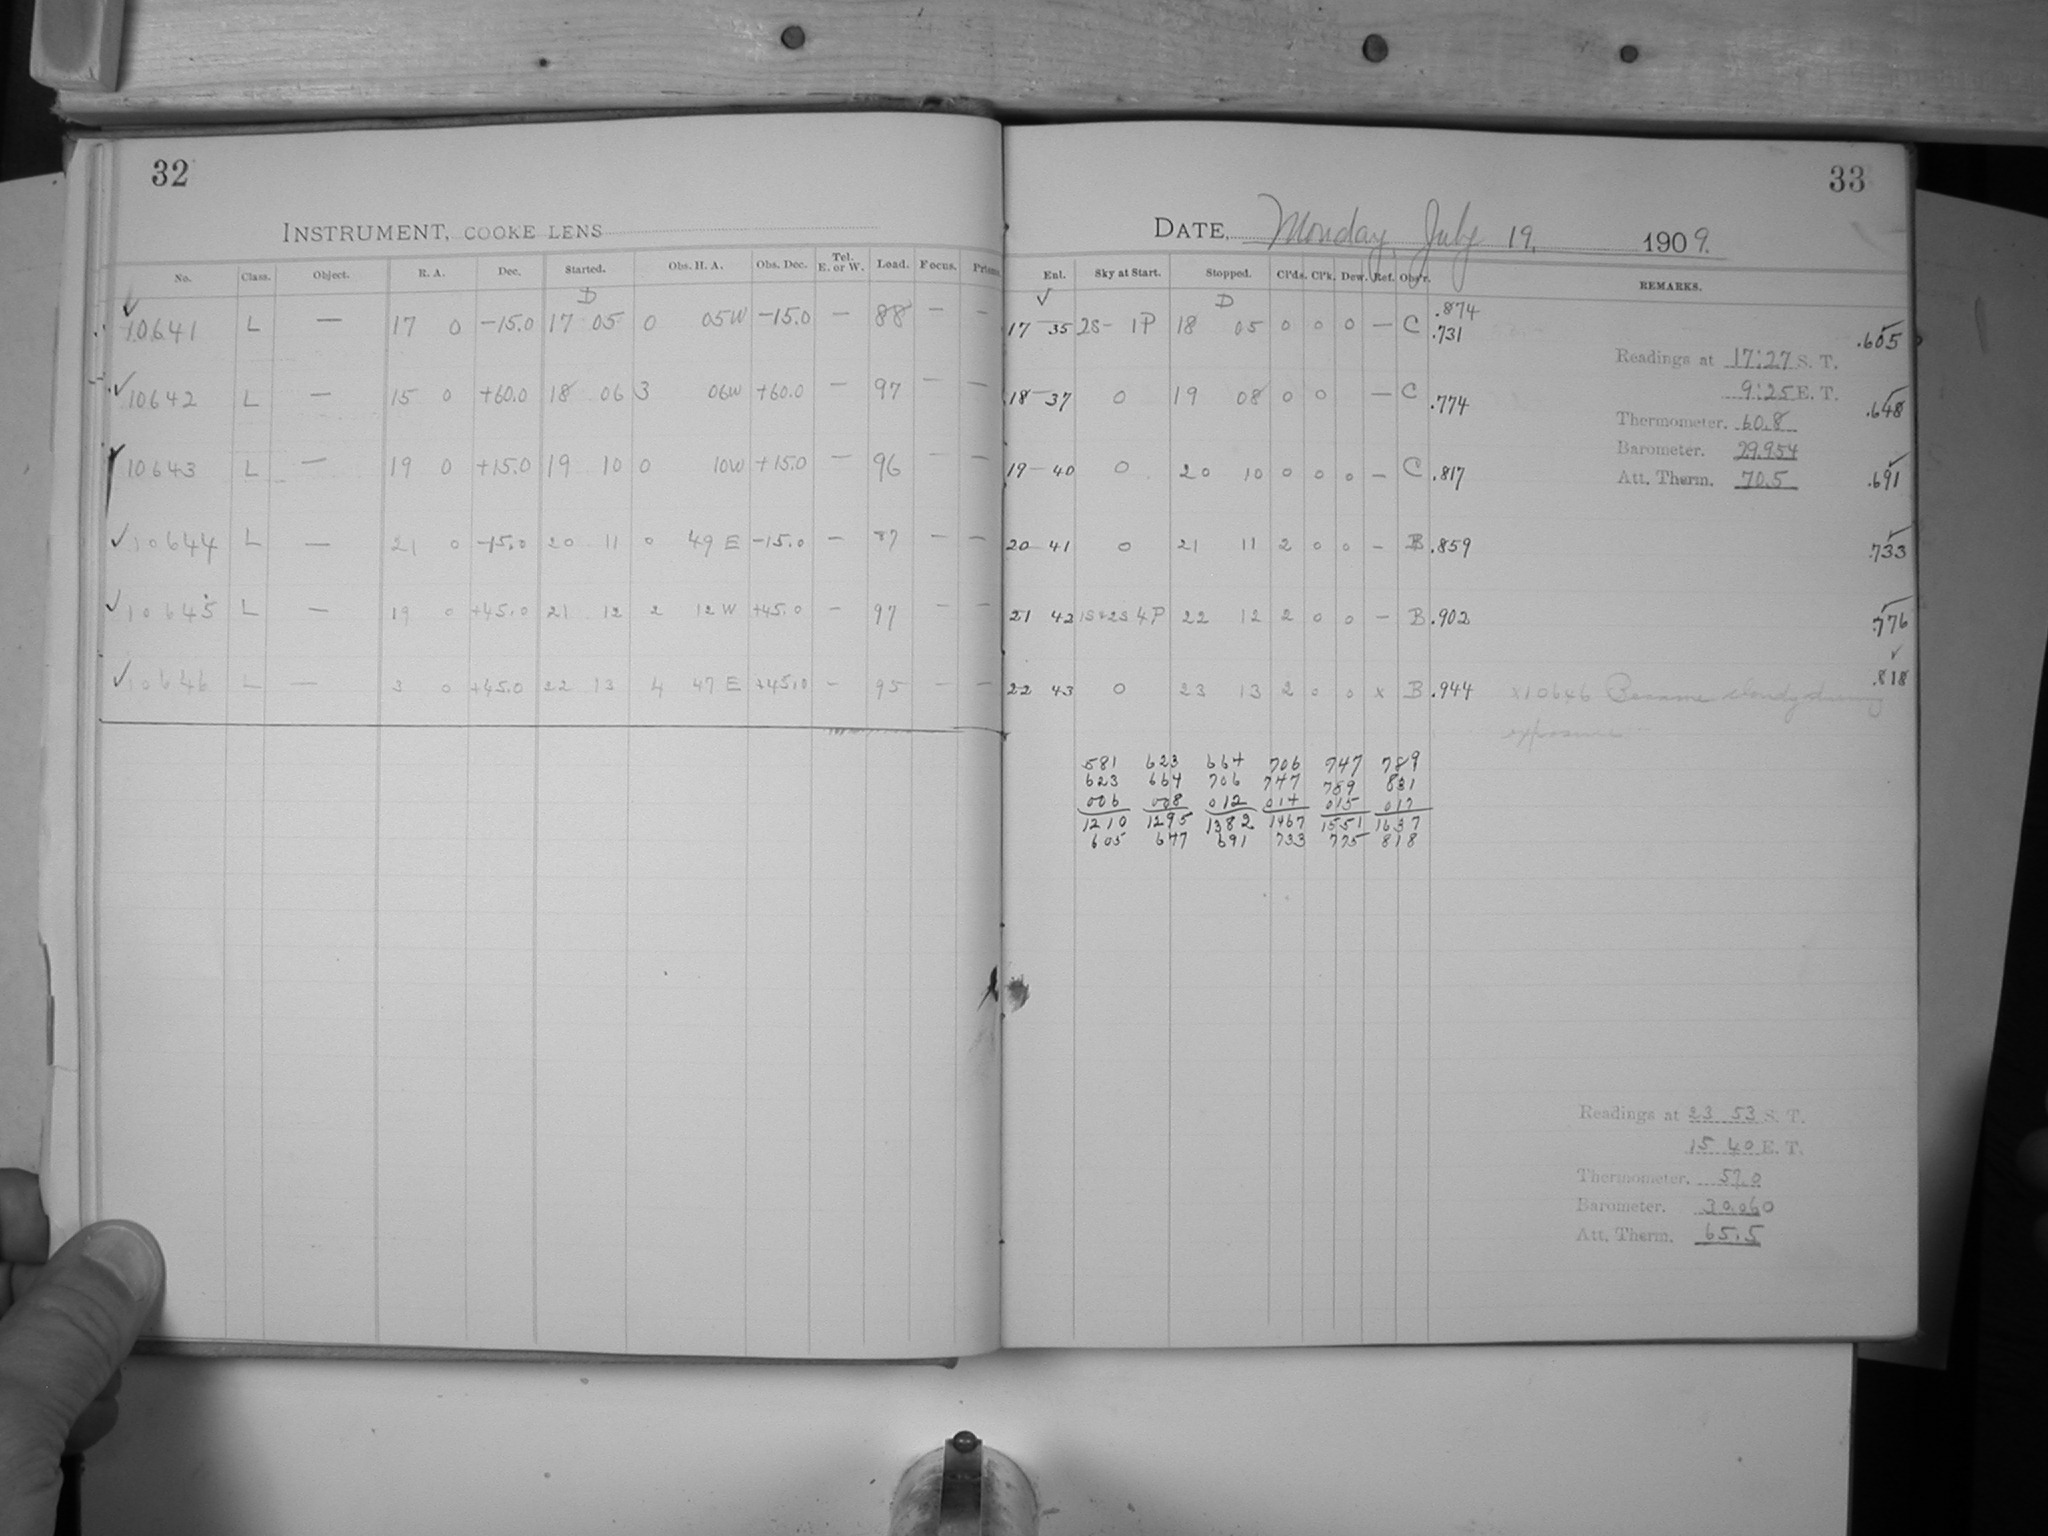 32
INSTRUMENT, COOKE LENS
No. Class. Object. R. A. Dec. Started. Obs. H. A. Obs. Dec. Tel. E. or W. Load. Focus. Prism.
D
✓ 10641 L — 17 0 -15.0 17 05 0 05W -15.0 — 88 — —
✓ 10642 L — 15 0 +60.0 18 06 3 06W +60.0 — 97 — —
10643 L — 19 0 +15.0 19 10 0 10W +15.0 — 96 — —
✓ 10644 L — 21 0 -15.0 20 11 0 49 E -15.0 — 87 — —
✓ 10645 L — 19 0 +45.0 21 12 2 12 W +45.0 — 97 — —
✓ 10646 L — 3 0 +45.0 22 13 4 47 E +45.0 — 95 — —
33
DATE, Monday, July 19, 1909.
Ent. Sky at Start. Stopped. Cl'ds. Cl'k. Dew. Ref. Obs'r. REMARKS.
✓ D .874
17 35 2S- 1P 18 05 0 0 0 — C .731 .605
Readings at 17:27 S. T.
9:25 E. T.
18 37 0 19 08 0 0 — C .774 .648
Thermometer. 60.8
Barometer. 29.954
19 40 0 20 10 0 0 0 — C .817 .691
Att. Therm. 70.5
20 41 0 21 11 2 0 0 - B .859 .733
21 42 1S+2S 4P 22 12 2 0 0 — B .902 .776
22 43 0 23 13 2 0 0 x B .944 x10646 Became cloudy during .818
exposure
581 623 664 706 747 789
623 664 706 747 789 831
006 008 012 014 015 017
1210 1295 1382 1467 1551 1637
605 647 691 733 775 818
Readings at 23 53 S. T.
15 40 E. T.
Thermometer. 57.0
Barometer. 30.060
Att. Therm. 65.5